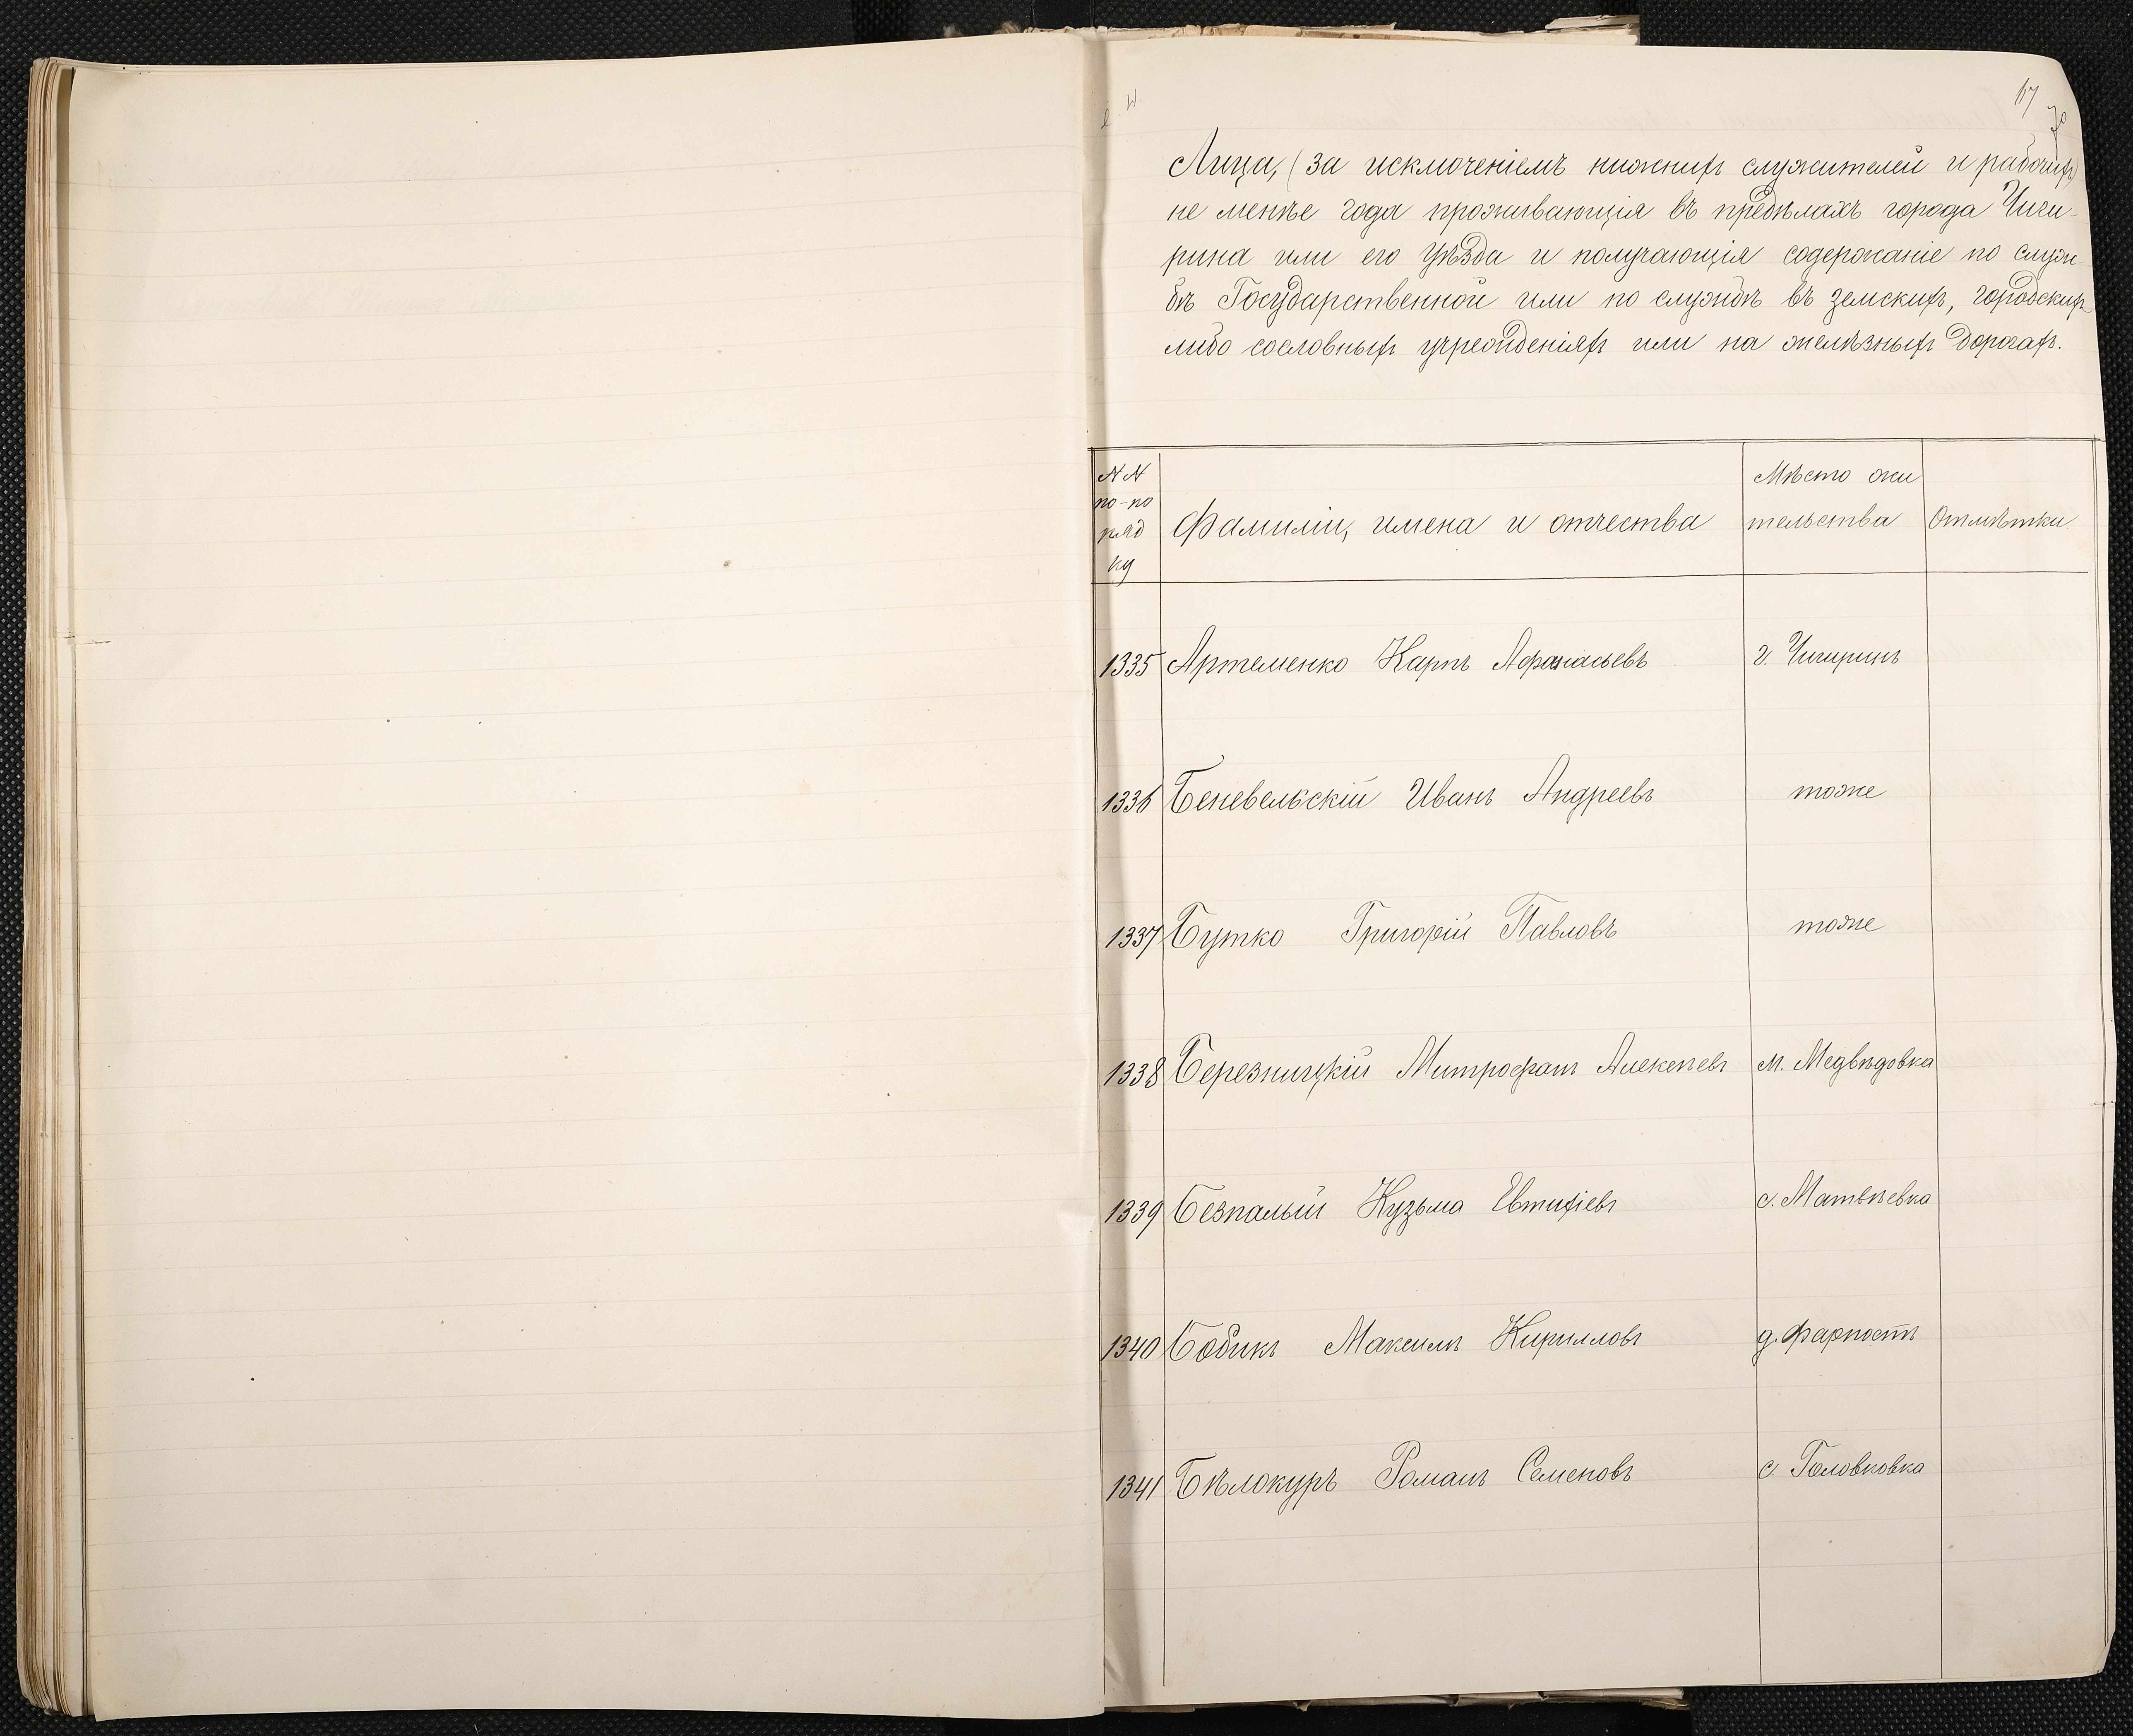 67
70
Лица, (за исключеніемъ нижнихъ служителей и рабочихъ)
не менѣе года проживающія въ предѣлахъ города Чиги-
рина или его уѣзда и получающія содержаніе по служ-
бѣ Государственной или по службѣ въ земскихъ, городскихъ
либо сословныхъ учрежденіяхъ или на желѣзныхъ дорогахъ.
NN по-по ряд ку
Фамиліи, имена и отчества
Мѣсто жи тельства
Отмѣтки
1335 Артеменко Карпъ Афанасьевъ г. Чигиринъ
1336 Беневельскій Иванъ Андреевъ тоже
1337 Бутко Григорій Павловъ тоже
1338 Березницкій Митрофанъ Алексѣевъ м. Медвѣдовка
1339 Безпалый Кузьма Евтихіевъ с. Матвѣевка
1340 Бобикъ Максимъ Кирилловъ д. Фарпостъ
1341 Бѣлокуръ Романъ Семеновъ с. Головковка